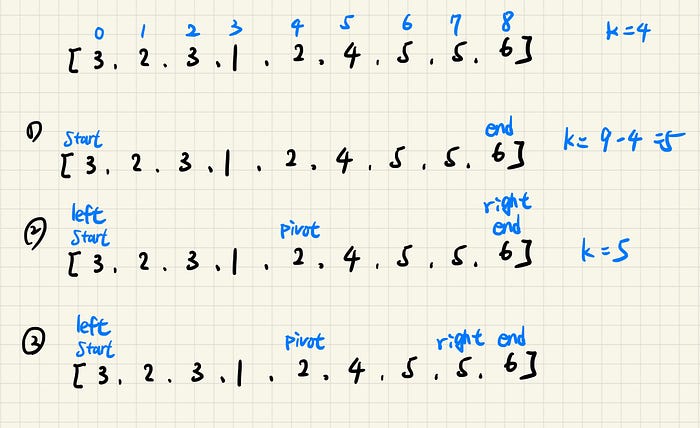 0 1 2 3 4 5 6 7 8
[ 3. 2. 3. 1. 2. 4. 5. 5. 6] k=4
① start end
[ 3. 2. 3. 1. 2. 4. 5. 5. 6] k= 9-4=5
left right
② start pivot end
[ 3. 2. 3. 1. 2. 4. 5. 5. 6] k=5
left
③ start pivot right end
[ 3. 2. 3. 1. 2. 4. 5. 5. 6]